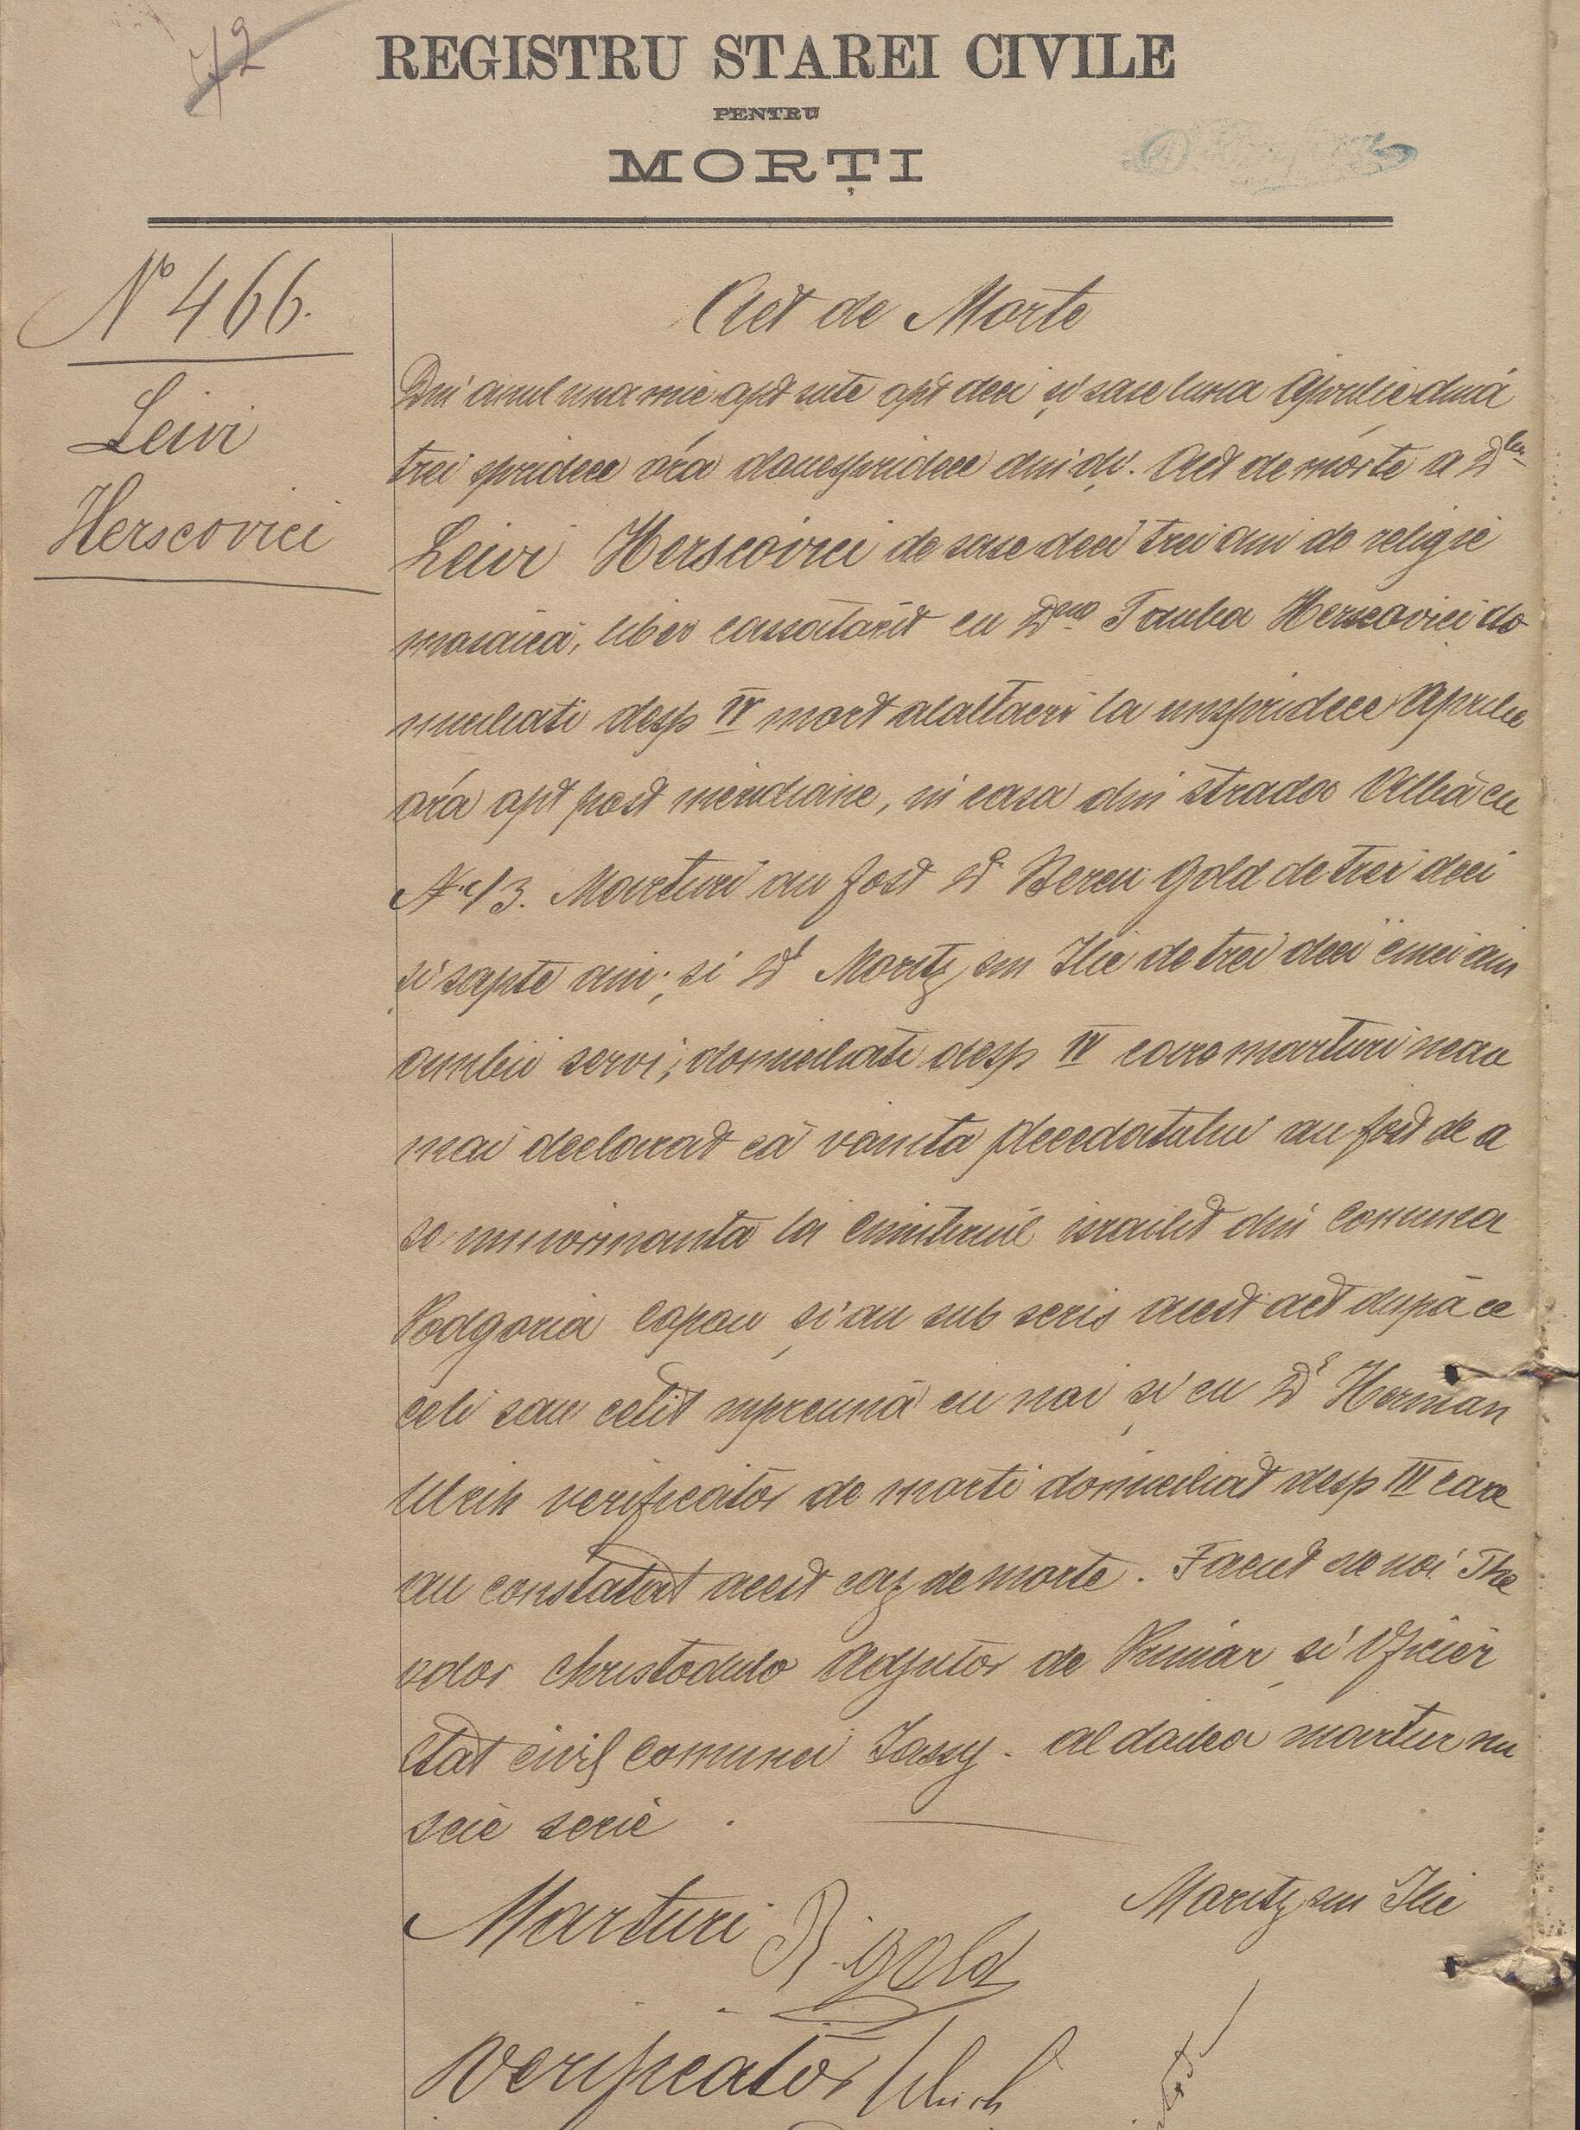 72
REGISTRU STAREI CIVILE
PENTRU
MORȚI
No 466.
Leivi
Herscovici
Act de Morte
Din anul una mie opt sute opt deci și sase luna Aprilie diuă
trei spridece óra douespridece din di. Act de mórte a Dlui
Leivi Herscovici de sase deci trei ani de religie
mosaică, liber cassatorit cu Dna Tauba Herscovici do
miciliati desp IV mort alaltaeri la unspridece Aprilie
óra opt post meridiane, in casa din strada Albă cu
No 13. Marturi au fost Dl Bercu Gold de trei deci
si sapte ani; si Dl Moritz sin Ilie de trei deci cinci ani
ambii servi; domiciliati desp IV care marturi neau
mai declarat că vointa decedatului au fost de a
se inmormanta la Cimiterul israilit din comuna
Podgoria Copou și au sub scris acest act după ce
celi sau cetit inpreună cu noi și cu Dl Herman
Ulrih verificator de morti domiciliat desp III care
au constatat acest caz de morte. Facut de noi The
odor Christodulo Adjutor de Primar și Oficier
Stat civil Comunei Jassy. al doilea martur nu
scie scrie.
Marturi B. Gold Moritz sin Ilie
Verificator Ulrich